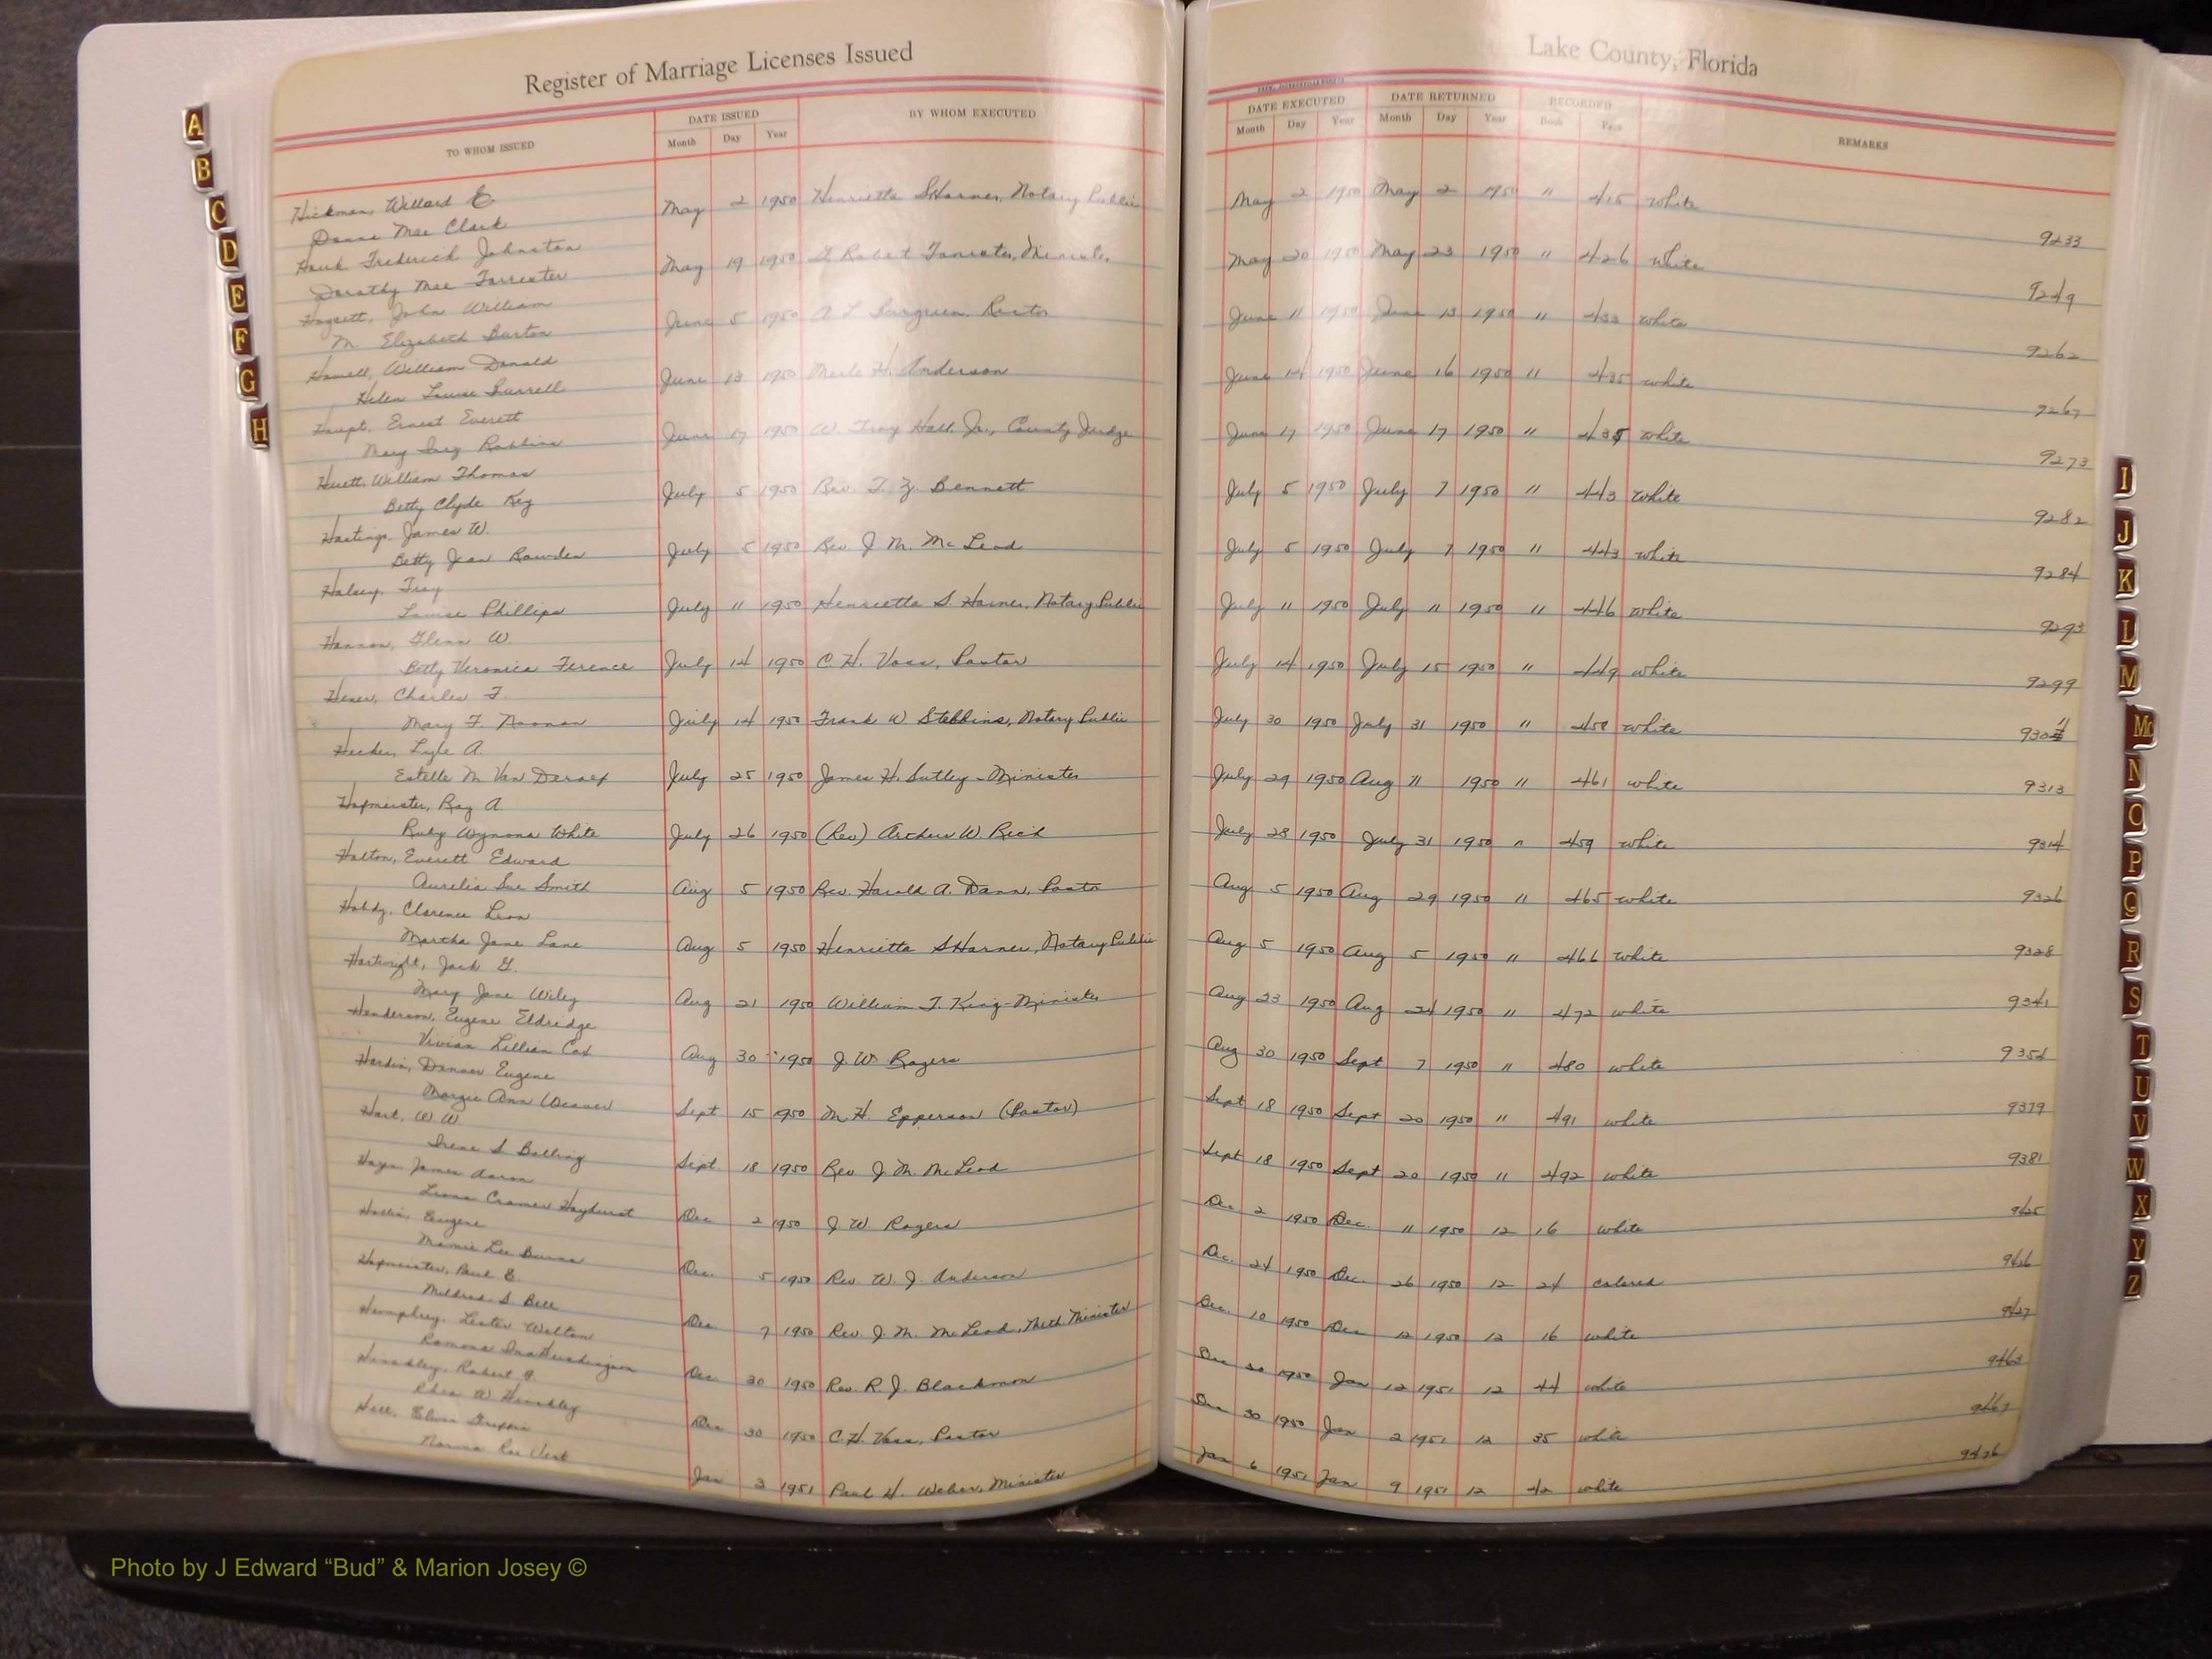 Register of Marriage Licenses Issued
Lake County, Florida
TO WHOM ISSUED
DATE ISSUED
Month Day Year
BY WHOM EXECUTED
DATE EXECUTED
Month Day Year
DATE RETURNED
Month Day Year
RECORDED
Book Page
REMARKS
A
B
C
D
E
F
G
H
Hickman, Willard
Donna Mae Clark
May 2 1950 Henrietta S Harner, Notary Public May 2 1950 May 2 1950 " 415 white
9233
Hauk Frederick Johnston
Dorothy Mae Forrester
May 19 1950 Robert Minister May 20 1950 May 23 1950 " 426 white
9249
John William
M. Elizabeth Burton
June 5 1950 A L June 11 1950 June 13 1950 " 433 white
9262
Howell, William Donald
Helen Louise
June 13 1950 Merle H. Anderson June 14 1950 June 16 1950 " 435 white
9267
Haupt, Ernest Everett
Mary Robbins
June 17 1950 W. Troy Hall, Jr., County Judge June 17 1950 June 17 1950 " 435 white
9273
William Thomas
Betty Clyde Key
July 5 1950 Rev. T. Z. Bennett July 5 1950 July 7 1950 " 443 white
9282
Hastings, James W.
Betty Jean Bowden
July 5 1950 Rev J. M. McLeod July 5 1950 July 7 1950 " 443 white
9284
Halsey, Troy
Louise Phillips
July 11 1950 Henrietta S. Harner, Notary Public July 11 1950 July 11 1950 " 446 white
9293
Hannon, Glenn W.
Betty Veronica Ference
July 14 1950 C. H. Voss, Pastor July 14 1950 July 15 1950 " 449 white
9299
Charles F.
Mary F. Noonan
July 14 1950 Frank W Stebbins, Notary Public July 30 1950 July 31 1950 " white
Lyle A.
Estelle M Van
July 25 1950 James H. Sutley - Minister July 29 1950 Aug 11 1950 " 461 white
9313
Hofmeister, Ray A.
Ruby Wynona White
July 26 1950 (Rev) W. Rich July 28 1950 July 31 1950 " 459 white
9314
Halton, Everett Edward
Aurelia Sue Smith
Aug 5 1950 Rev. Harold A. Dann, Pastor Aug 5 1950 Aug 29 1950 " 465 white
9326
Clarence Leon
Martha Jane Lane
Aug 5 1950 Henrietta S Harner, Notary Public Aug 5 1950 Aug 5 1950 " 466 white
9328
Hartwright, Jack G.
Mary Jane Wiley
Aug 21 1950 William T. King - Minister Aug 23 1950 Aug 24 1950 " 472 white
9341
Henderson, Eugene Eldridge
Vivian Lillian Cox
Aug 30 1950 J. W. Rogers Aug 30 1950 Sept 7 1950 " 480 white
Hardin, Eugene
Margie Ann Weaver
Sept 15 1950 M H. Epperson (Pastor) Sept 18 1950 Sept 20 1950 " 491 white
9379
Hart, W. W.
Irene S. Bolling
Sept. 18 1950 Rev J. M. McLeod Sept 18 1950 Sept 20 1950 " 492 white
9381
James Aaron
Leona Cramer Hayhurst
Dec 2 1950 J. W. Rogers Dec 2 1950 Dec. 11 1950 12 16 white
9425
Hollis, Eugene
Mamie Lee Burns
Dec. 5 1950 Rev. W. J. Anderson Dec. 24 1950 Dec. 26 1950 12 24 colored
9426
Hofmeister, Paul E.
Mildred S. Bell
Dec 7 1950 Rev. J. M. McLeod, Meth Minister Dec. 10 1950 Dec 12 1950 12 16 white
9427
Humphrey, Lester Welton
Ramona
Dec 30 1950 Rev. R. J. Blackmon Dec 30 1950 Jan 12 1951 12 44 white
9463
Hinckley, Robert
Rhea W. Hinckley
Dec 30 1950 C. H. Voss, Pastor Dec 30 1950 Jan 2 1951 12 35 white
9467
Hill,
Norma Rae
Jan 3 1951 Paul H. Weber, Minister Jan 6 1951 Jan 9 1951 12 42 white
9476
I
J
K
L
M
Mc
N
O
P
Q
R
S
T
U
V
W
X
Y
Z
Photo by J Edward “Bud” & Marion Josey ©